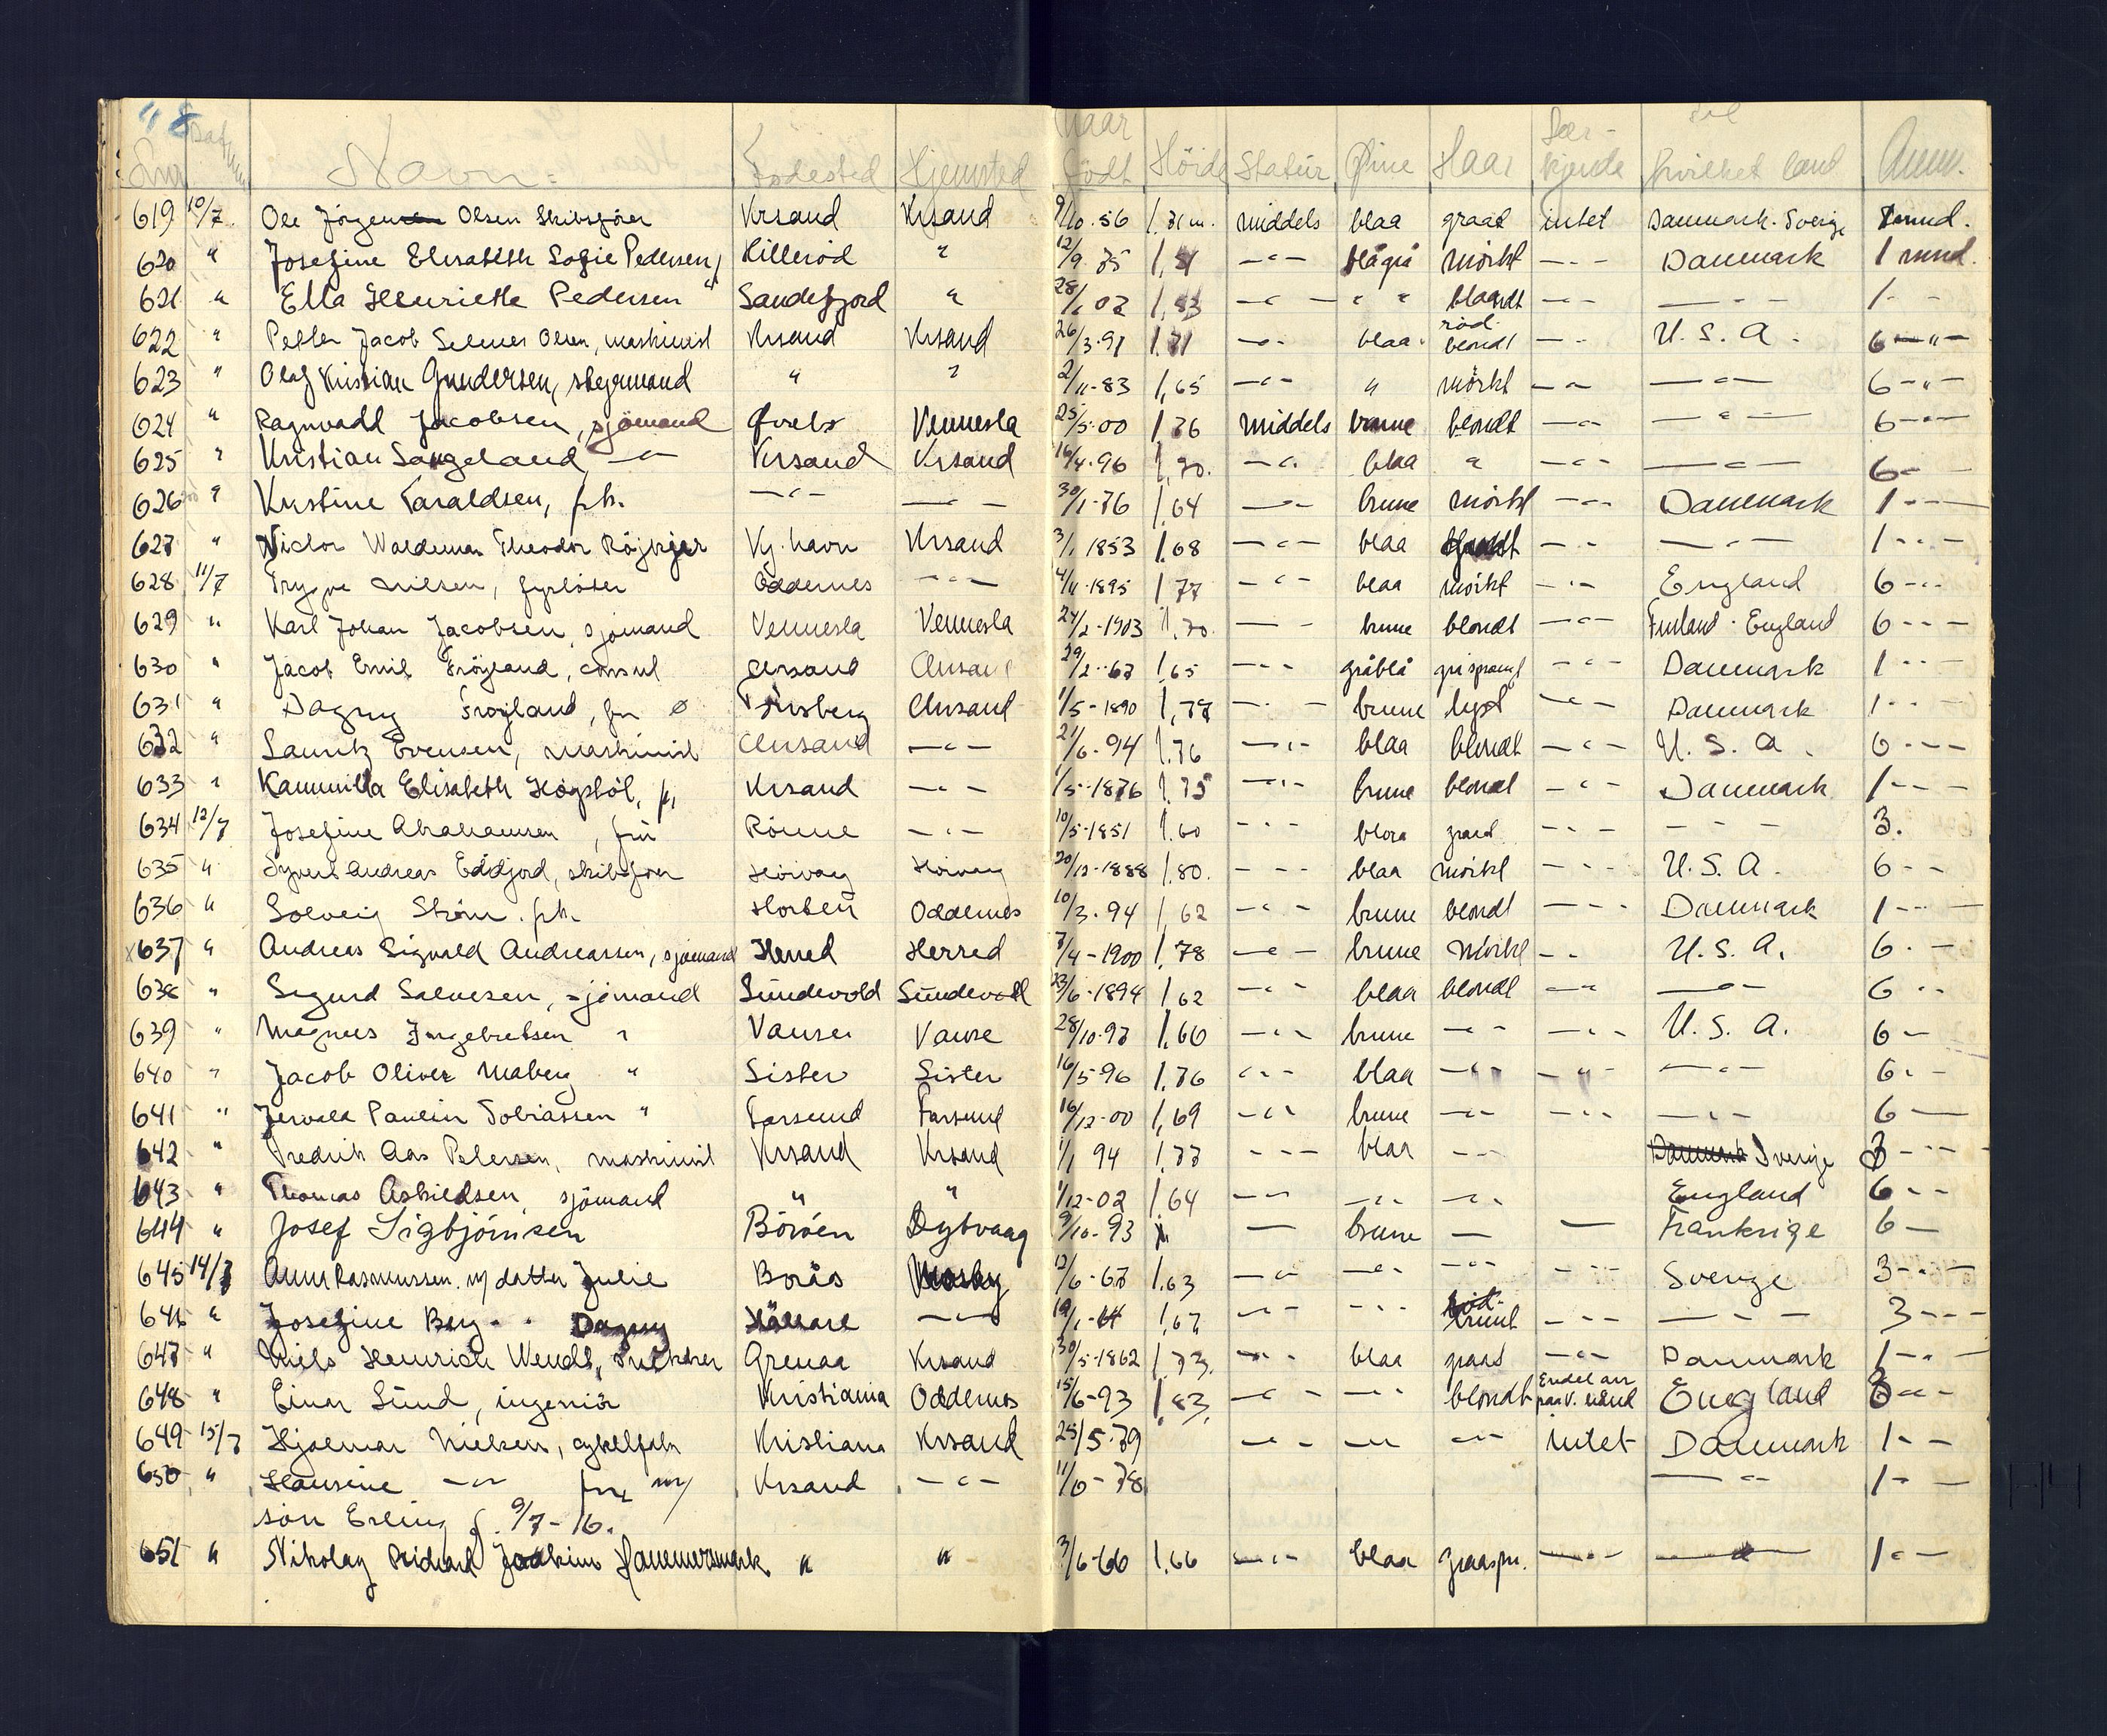 48
Dat
Navn: Fødested Hjemsted Naar født Höide Statur Øine Haar Sær-kjende til hvilket land Anm.
619 10/7. Ole Jörgensen Olsen Skibsförer Krsand Krsand 9/10.56 1.71 m. middels blaa graat intet Danmark. Sverige 1 mnd.
620 " Josefine Elisabeth Sofie Pedersen, Hilleröd " 12/9.75 1,51 -"- blågrå mörkt -"- Danmark 1 mnd.
621 " Ella Henriette Pedersen " Sandefjord " 28/1 02 1,53 -"- " " blaandt -"- -"- 1 - -
622 " Petter Jacob Selmer Olsen, maskinist Krsand Krsand 26/3.91 1.71 -"- blaa. röd-blondt -"- U.S.A. 6 -"-
623 " Olaf Kristian Gundersen, styrmand " " 2/11-83 1,65 -"- " mörkt -"- -"- 6 -"-
624 " Ragnvald Jacobsen, sjömand Øvrebø Vennesla 25/5-00 1.76 middels brune blondt -"- -"- 6 -"-
625 " Kristian Sangeland -"- Krsand Krsand 16/4-96 1,70. -"- blaa " -"- -"- 6 -
626 " Kristine Taraldsen, frk. -"- -"- 30/1-76 1.64 -"- brune mörkt -"- Danmark 1 -"-
627 " Victor Waldemar Theodor Kj.havn Krsand 3/1 1853 1.68 -"- blaa -"- -"- 1 -"-
628 11/7 Trygve Nilsen, fyrböter Oddernes -"- 4/11-1895 1.77 -"- blaa mörkt -"- England 6 -"-
629 " Karl Johan Jacobsen, sjömand Vennesla Vennesla 24/2-1903 1.70. -"- brune blondt -"- Finland - England 6 -"-
630 " Jacob Emil Fröyland, consul Chrsand Chrsand 29/2-67 1.65 -"- gråblå gråsprængt -"- Danmark 1 -"-
631 " Dagny Fröyland, fru Ø Tönsberg Chrsand 1/5-1890 1,77 -"- brune lyst -"- Danmark 1 -"-
632 " Lauritz Evensen, maskinist Chrsand -"- 21/6-94 1.76 -"- blaa blondt -"- U.S.A. 6 -"-
633 " Kammilla Elisabeth Högstöl, fr, Krsand -"- 1/5-1876 1.75 -"- brune blondt -"- Danmark 1 -"-
634 12/7 Josefine Abrahamsen, frü Rönne -"- 10/5-1851 1.60 -"- blaa graad -"- -"- 3.
635 " Syvert Andreas Eddjord, skibsförer Hövaag Hövaag 20/12-1888 1.80. -"- blaa mörkt -"- U.S.A. 6 -"-
636 " Solveig Ström. frk. Horten Oddernes 10/3-94 1,62 -"- brune blondt -"- Danmark 1 -"-
x637 " Andreas Sigvald Andreassen, sjömand Herred Herred 7/4-1900 1.78 -"- brune mörkt -"- U.S.A. 6 -"-
638 " Sigurd Salvesen, sjömand Sündevold Sündevold 23/6-1894 1.62 -"- blaa blondt -"- -"- 6 -"-
639 " Magnus Ingebretsen " Vanse Vanse 28/10-97 1.60 -"- brune -"- -"- U.S.A. 6 -
640 " Jacob Oliver Maberg " Lister Lister 16/5-96 1.76 -"- blaa -"- -"- -"- 6 -
641 " Paulin Tobiassen " Farsund Farsund 16/12-00 1,69 -"- brune -"- -"- -"- 6 -
642 " Fredrik Aas Petersen, maskinist Krsand Krsand 1/1 94 1.77 -"- blaa -"- Danmark Sverige 3 -"-
643 " Thomas Askildsen, sjömand " " 1/12-02 1.64 -"- -"- -"- England 6 -"-
644 " Josef Sigbjörnsen Böröen Dybvaag 9/10-93 - brune - - Frankrige 6 -
645 14/7 Anna Rasmussen. m/ datter Julie Borås Mosby 12/6-67 1.63 -"- -"- -"- -"- Sverige 3 -"-
646 " Josefine Berg - " Dagny -"- 19/1- 1.67 -"- -"- röd-brunt -"- -"- 3 -"-
647 " Niels Heinrich Wendt, Grenaa Krsand 30/5-1862 1.73. -"- blaa graat -"- Danmark 1 -"-
648 " Einar Sünd, ingeniör Kristiania Oddernes 15/6-93 1.83. -"- -"- blondt Endel arr paa v. haand England 6 -"-
649 15/7 Hjalmar Nielsen, cykelfabr Kristiania Krsand 25/5-79 -"- -"- -"- intet Danmark 1 -"-
650 " Hansine -"- fru m/ Krsand -"- 11/6-78 -"- 1 -"-
sön Erling f. 9/7-16.
651 " Nikolay Rickard Joakim Hammersmark " " 3/6-60 1.66 -"- blaa graaspr. -"- -"- 1 -"-